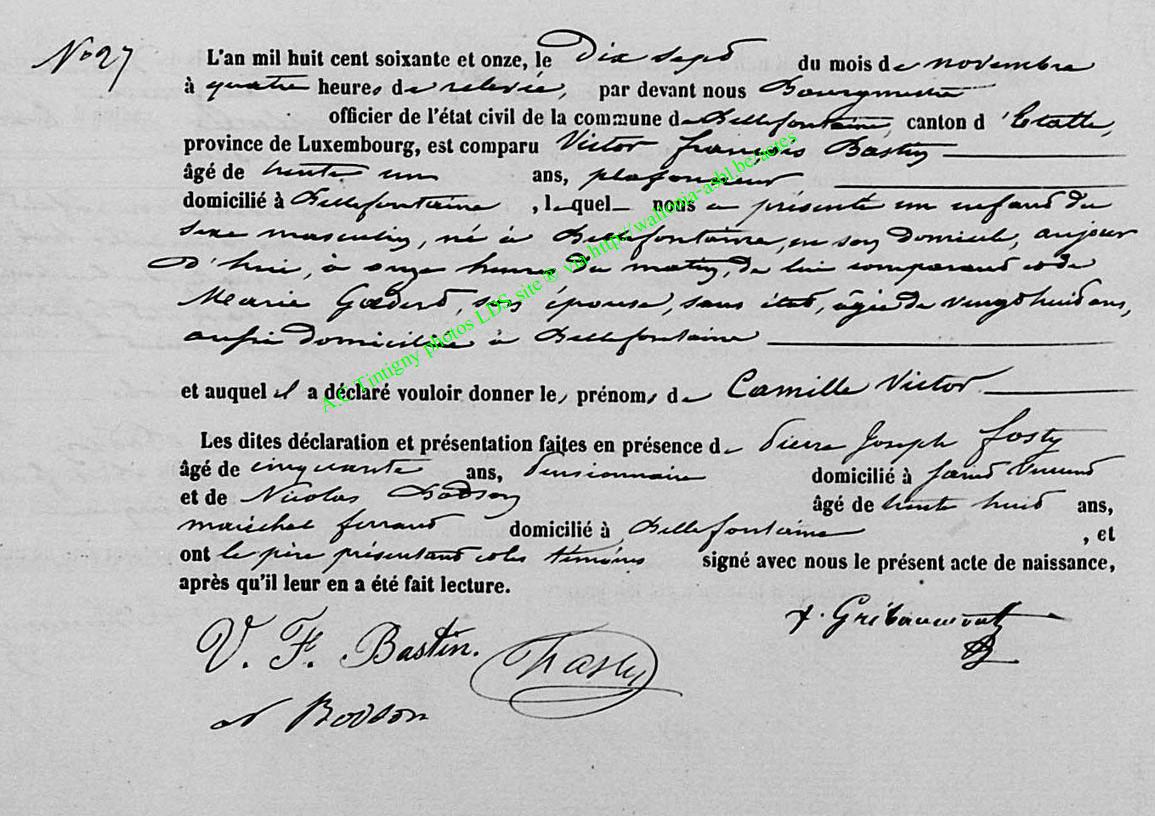 No 27
L'an mil huit cent soixante et onze, le Dix sept du mois de novembre
à quatre heures de relevée, par devant nous Bourgmestre
officier de l'état civil de la commune de Bellefontaine, canton d'Etalle,
province de Luxembourg, est comparu Victor François Bastin
âgé de trente un ans, plafonneur
domicilié à Bellefontaine, lequel nous a présenté un enfant du
sexe masculin, né à Bellefontaine, en son domicile, aujour
d'hui, à onze heures du matin, de lui comparant et de
Marie Godert, son épouse, sans état, âgée de vingt huit ans,
aussi domiciliée à Bellefontaine
et auquel il a déclaré vouloir donner les prénoms de Camille Victor
Les dites déclaration et présentation faites en présence de Pierre Joseph Fosty
âgé de cinquante ans, Pensionnaire domicilié à Saint Vincent
et de Nicolas Bodson âgé de trente huit ans,
maréchal ferrant domicilié à Bellefontaine, et
ont le père présentant et les témoins signé avec nous le présent acte de naissance,
après qu'il leur en a été fait lecture.
V. F. Bastin.
Fosty
N Bodson
Gribaumont
A.C Tintigny photos LDS site ® via http://wallonia-asbl.be/actes